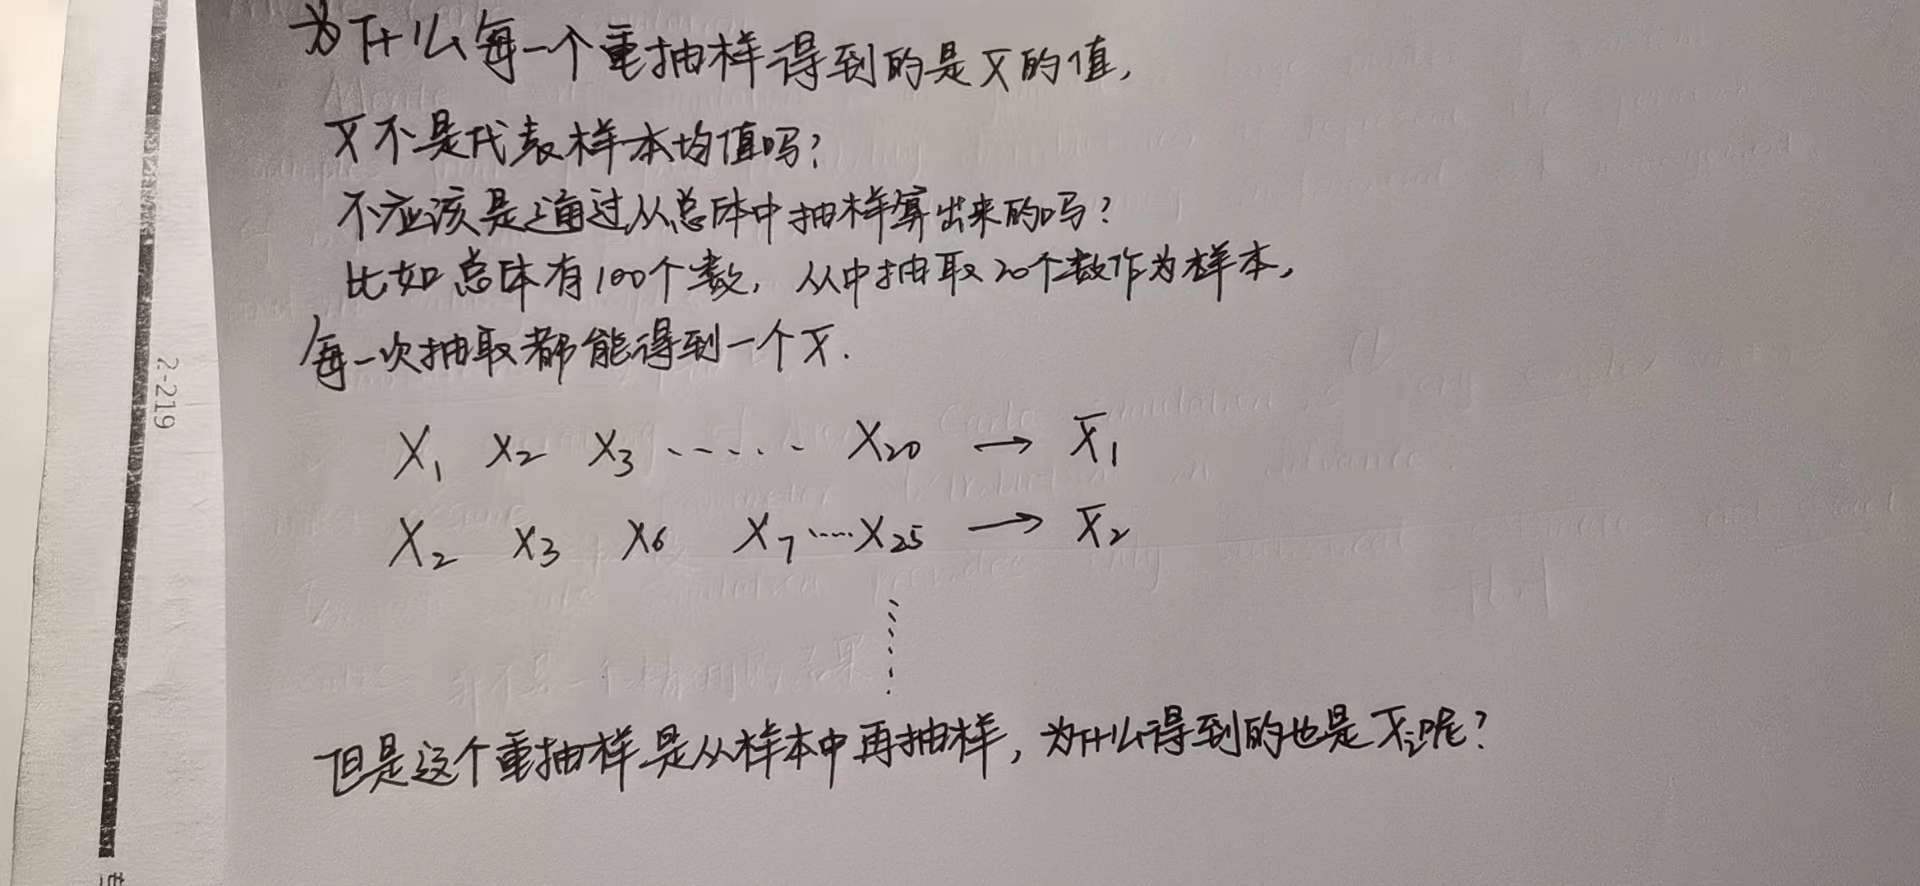 为什么每一个重抽样得到的是x̄的值,
x̄不是代表样本均值吗?
不应该是通过从总体中抽样算出来的吗?
比如总体有100个数, 从中抽取20个数作为样本,
每一次抽取都能得到一个x̄.
X₁ X₂ X₃ ...... X₂₀ → x̄₁
X₂ X₃ X₆ X₇ ..... X₂₅ → x̄₂
但是这个重抽样是从样本中再抽样, 为什么得到的也是x̄呢?
2-219